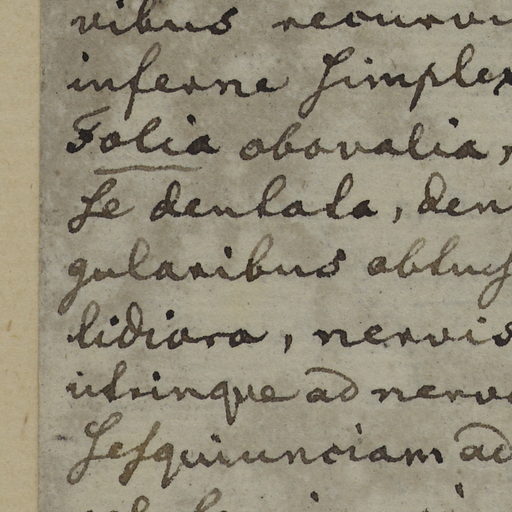 vibus recurvi
inferne simplex
Folia obovalia,
se dentata, den
gularibus obtus
lidiora, nervis
utrinque ad nerv
sesquiunciam ad